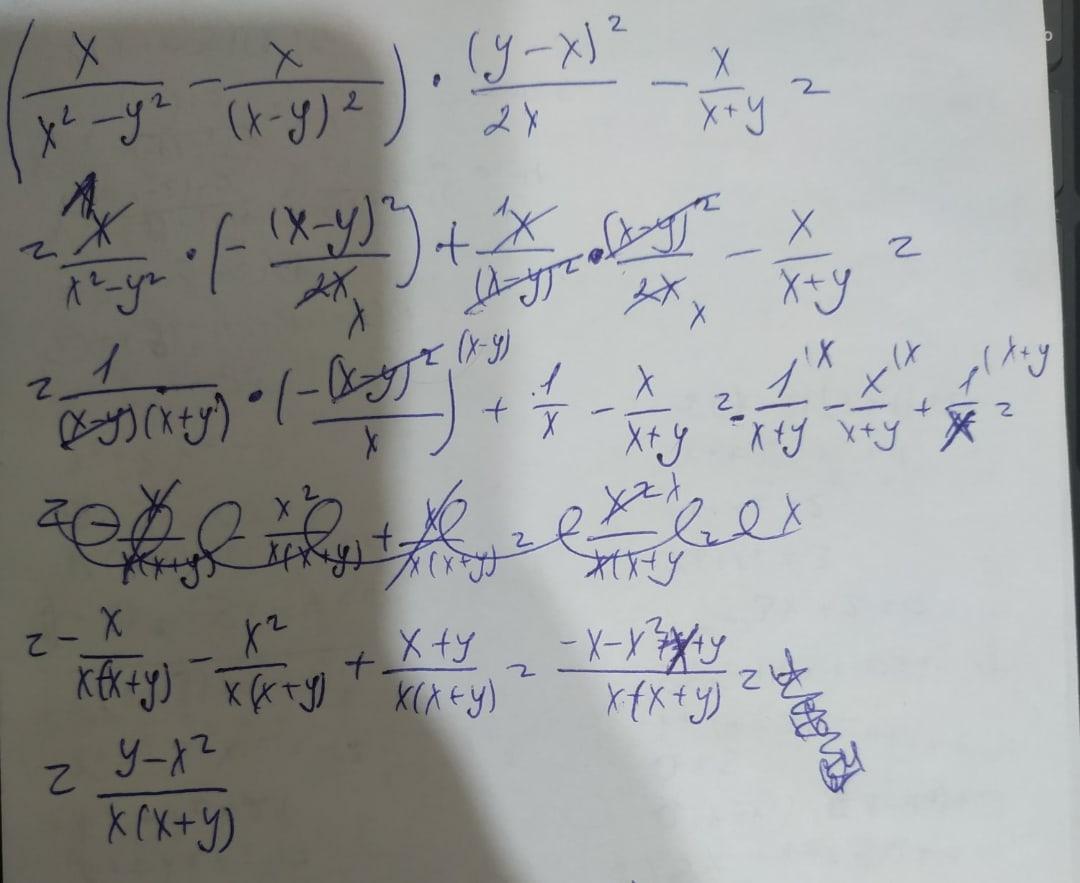 (x/(x² - y²) - x/(x-y)²) · (y-x)²/2x - x/(x+y) =
= x/(x²-y²) · (- (x-y)²/2x) + x/(x-y)² · (x-y)²/2x - x/(x+y) =
= 1/((x-y)(x+y)) · (- (x-y)²/x) + 1/x - x/(x+y) = - 1/(x+y) - x/(x+y) + 1/x =
= - x/(x(x+y)) - x²/(x(x+y)) + (x+y)/(x(x+y)) = (-x-x²+x+y)/(x(x+y)) =
= (y-x²)/(x(x+y))